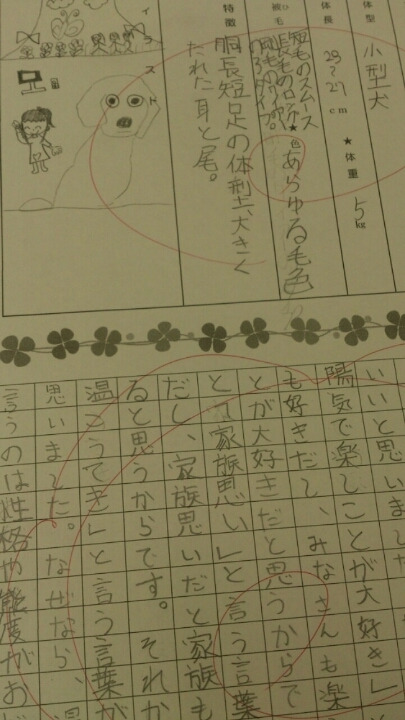 体型 小型犬
体長 23～27cm ★体重 5kg
被毛 短毛のスムース
長毛のロング★色 あらゆる毛色
特徴 胴長短足の体型、大きく
たれた耳と尾。
イラスト
いいと思いました
陽気で楽しことが大好き」
も好きだし、みなさんも楽
とが大好きだと思うからで
と「家族思い」と言う言葉
だし、家族思いだと家族も
ると思うからです。それか
温こうてき」と言う言葉が
思いました。なぜなら、温
言うのは性格や態度があ